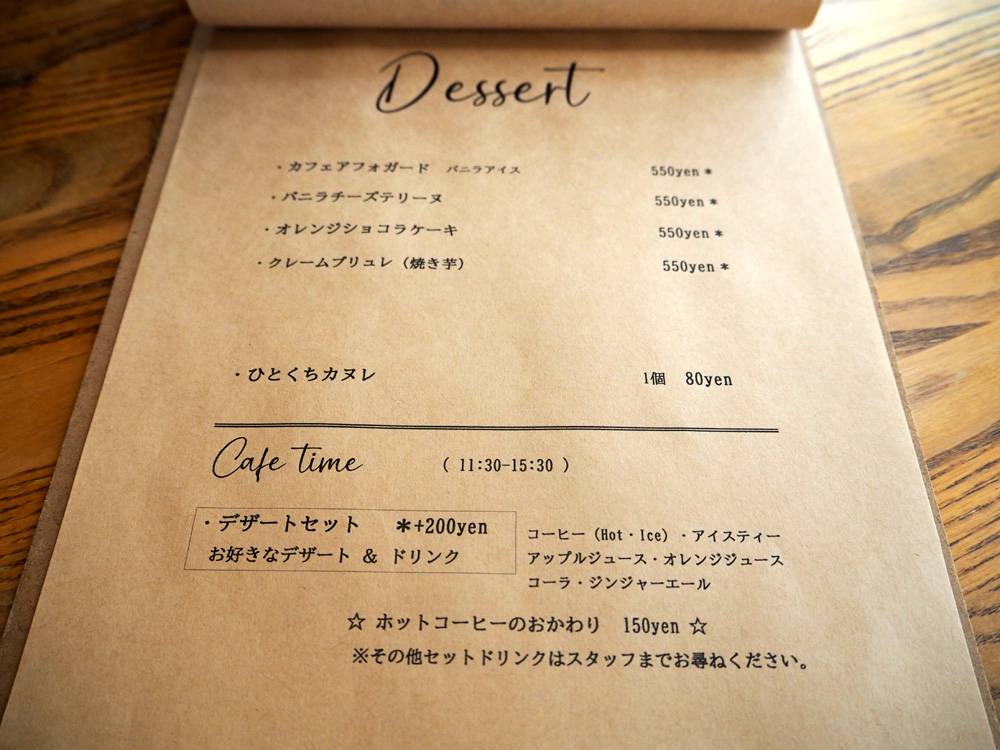 Dessert
・カフェアフォガード バニラアイス 550yen *
・バニラチーズテリーヌ 550yen *
・オレンジショコラケーキ 550yen *
・クレームブリュレ（焼き芋） 550yen *
・ひとくちカヌレ 1個 80yen
Cafe time ( 11:30-15:30 )
・デザートセット *+200yen
お好きなデザート & ドリンク
コーヒー（Hot・Ice）・アイスティー
アップルジュース・オレンジジュース
コーラ・ジンジャーエール
☆ ホットコーヒーのおかわり 150yen ☆
※その他セットドリンクはスタッフまでお尋ねください。